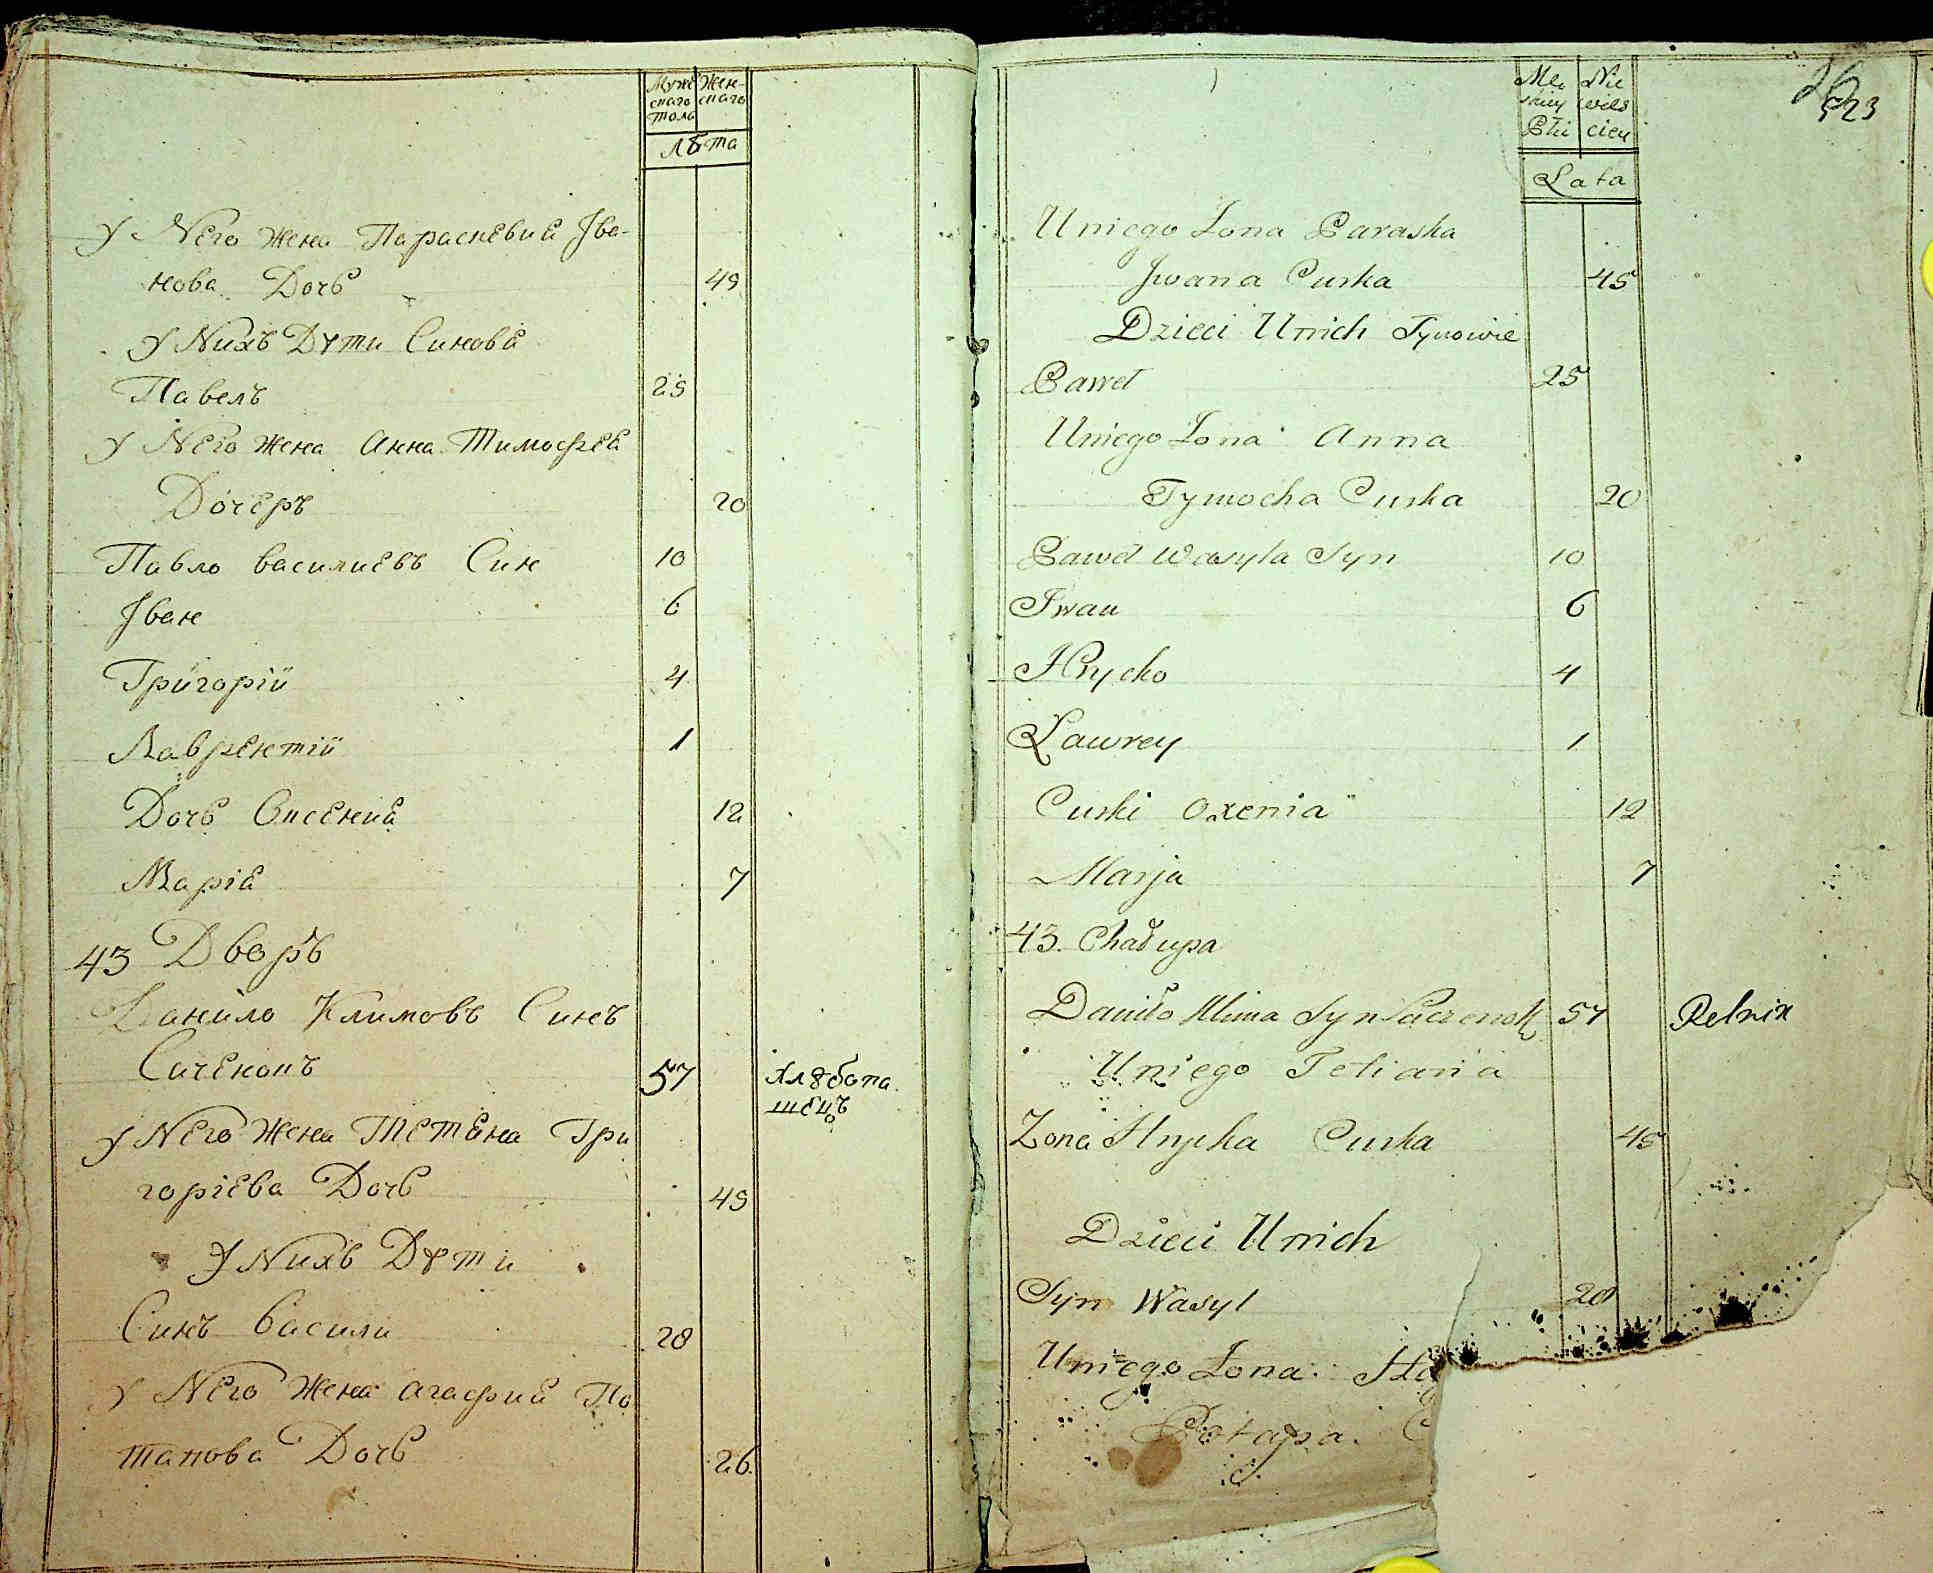 Муже
скаго
полъ
Жен
скаго
лѣта
У Него жена Параскевиа Іва-
нова Дочь 45
У Нихъ Дѣти Синовя
Павелъ 25
У Него жена Анна Тимофея
Дочеръ 20
Павло василиевъ Син 10
Іван 6
Григорій 4
Лаврентій 1
Дочь Ѡксениа 12
Маріа 7
43 Дворъ
Данило Климовъ Синъ
Саченокъ 57 Хлѣбопа
шецъ
У Него жена Тетяна Гри
горіева Дочь 45
У Нихъ Дѣти
Синъ Васили 28
У Него жена агафиа По
тапова Дочь 26
Męs
Płci
Nie
wies
ciey
Lata
523
Uniego Zona Paraska
Jwana Curka 45
Dzieci Unich Synowie
Paweł 25
Uniego Zona Anna
Tymocha Curka 20
Paweł Wasyla Syn 10
Jwan 6
Hrycko 4
Lawrey 1
Curki Oxenia 12
Marja 7
43 Chałupa
Daniło Klima Syn Saczenok 57 Rolnik
Uniego Tetiana
Zona Hrycka Curka 45
Dzieci Unich
Syn Wasyl 28
Uniego Zona Ha
Potapa C